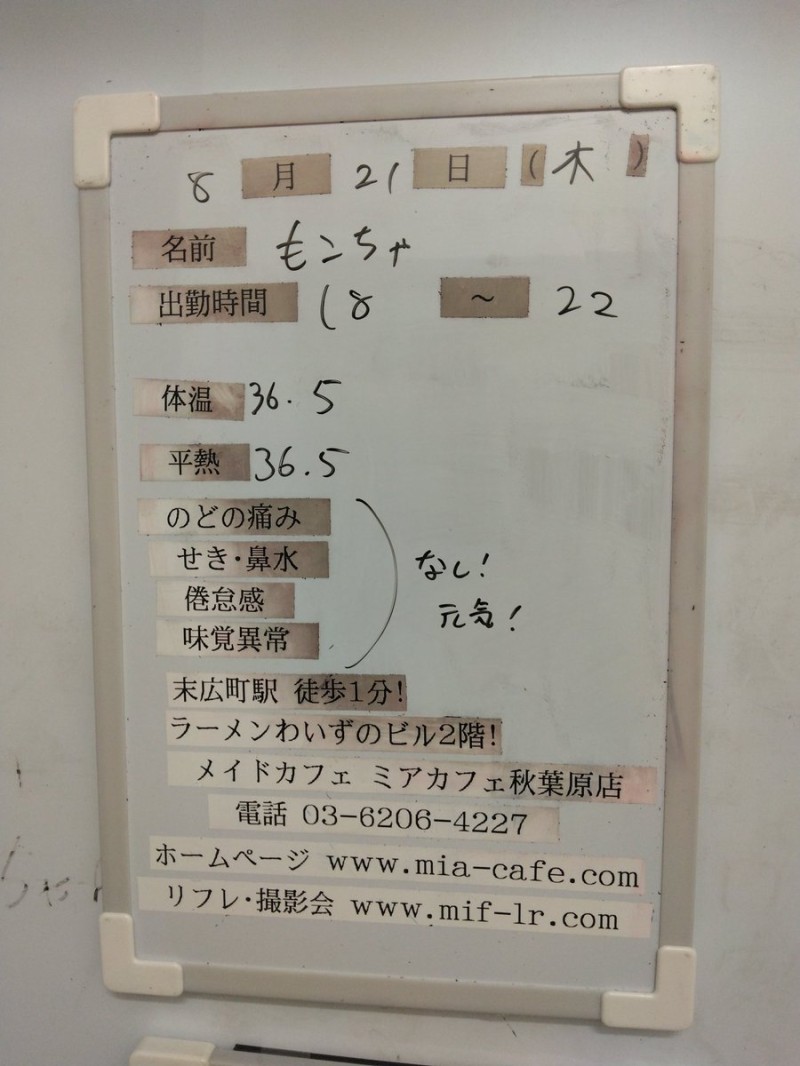 8月21日(木)
名前 もンちゃ
出勤時間 18 ~ 22
体温 36.5
平熱 36.5
のどの痛み
せき・鼻水
倦怠感
味覚異常
なし!
元気!
末広町駅 徒歩1分!
ラーメンわいずのビル2階!
メイドカフェ ミアカフェ秋葉原店
電話 03-6206-4227
ホームページ www.mia-cafe.com
リフレ・撮影会 www.mif-lr.com